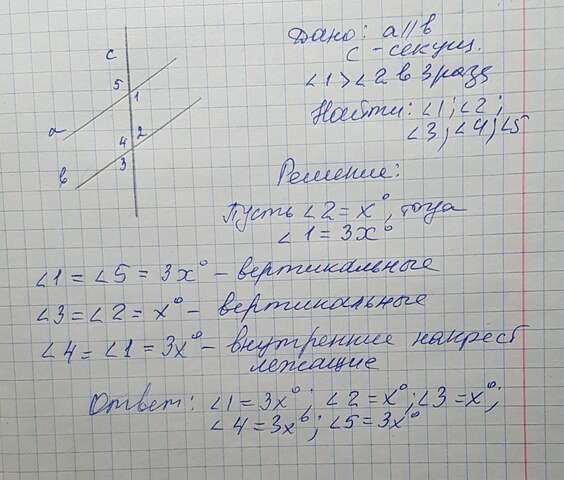 с
5
1
а
4 2
3
в
Дано: а||в
с - секущ.
∠1 > ∠2 в 3 раза
Найти: ∠1; ∠2;
∠3, ∠4, ∠5
Решение:
Пусть ∠2 = x°, тогда
∠1 = 3x°
∠1 = ∠5 = 3x° - вертикальные
∠3 = ∠2 = x° - вертикальные
∠4 = ∠1 = 3x° - внутренние накрест
лежащие
Ответ: ∠1 = 3x°; ∠2 = x°; ∠3 = x°;
∠4 = 3x°; ∠5 = 3x°